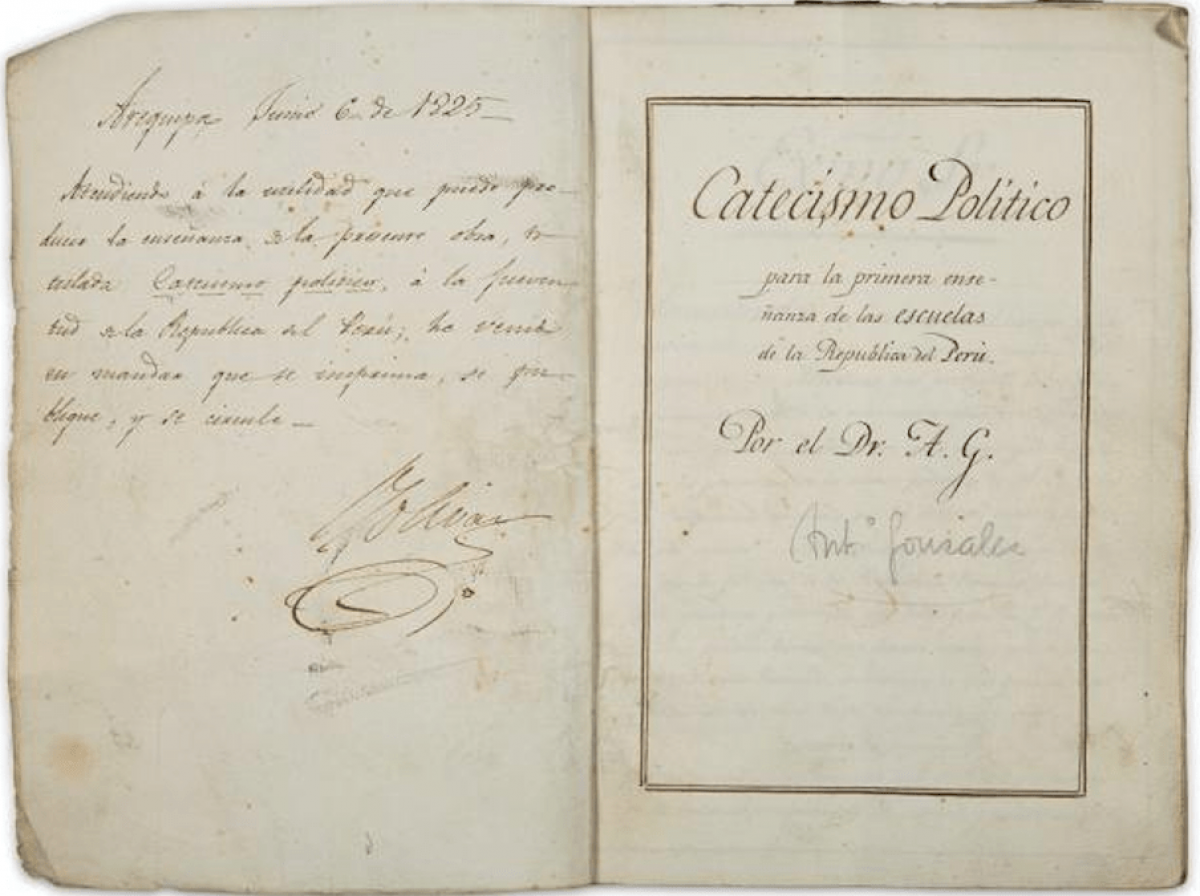 Arequipa Junio 6 de 1825
Atendiendo á la utilidad que puede pro-
ducir la enseñanza de la presente obra, ti-
tulada Catecismo politico, á la juven-
tud de la Republica del Perú; he venido
en mandar que se imprima, se pu-
blique, y se circule
Bolivar
Catecismo Político
para la primera ense-
ñanza de las escuelas
de la Republica del Perú.
Por el Dr. A. G.
Ant.º Gonsales